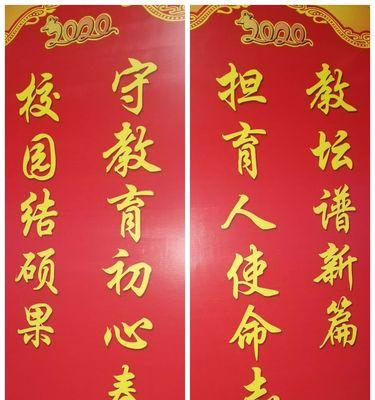 2020
守教育初心
校园结硕果
2020
担育人使命
教坛谱新篇